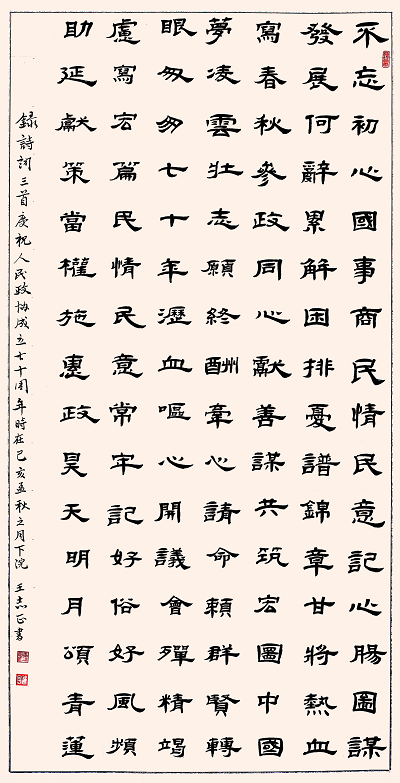 不忘初心國事商民情民意記心腸圖謀
發展何辭累解困排憂譜錦章甘將熱血
寫春秋參政同心獻善謀共筑宏圖中國
夢凌雲壯志願終酬牽心請命賴群賢轉
眼匆匆七十年瀝血嘔心開議會殫精竭
慮寫宏篇民情民意常牢記好俗好風頻
助延獻策當權施惠政昊天明月頌青蓮
録詩詞三首慶祝人民政协成立七十周年時在己亥孟秋之月下浣 王志正書